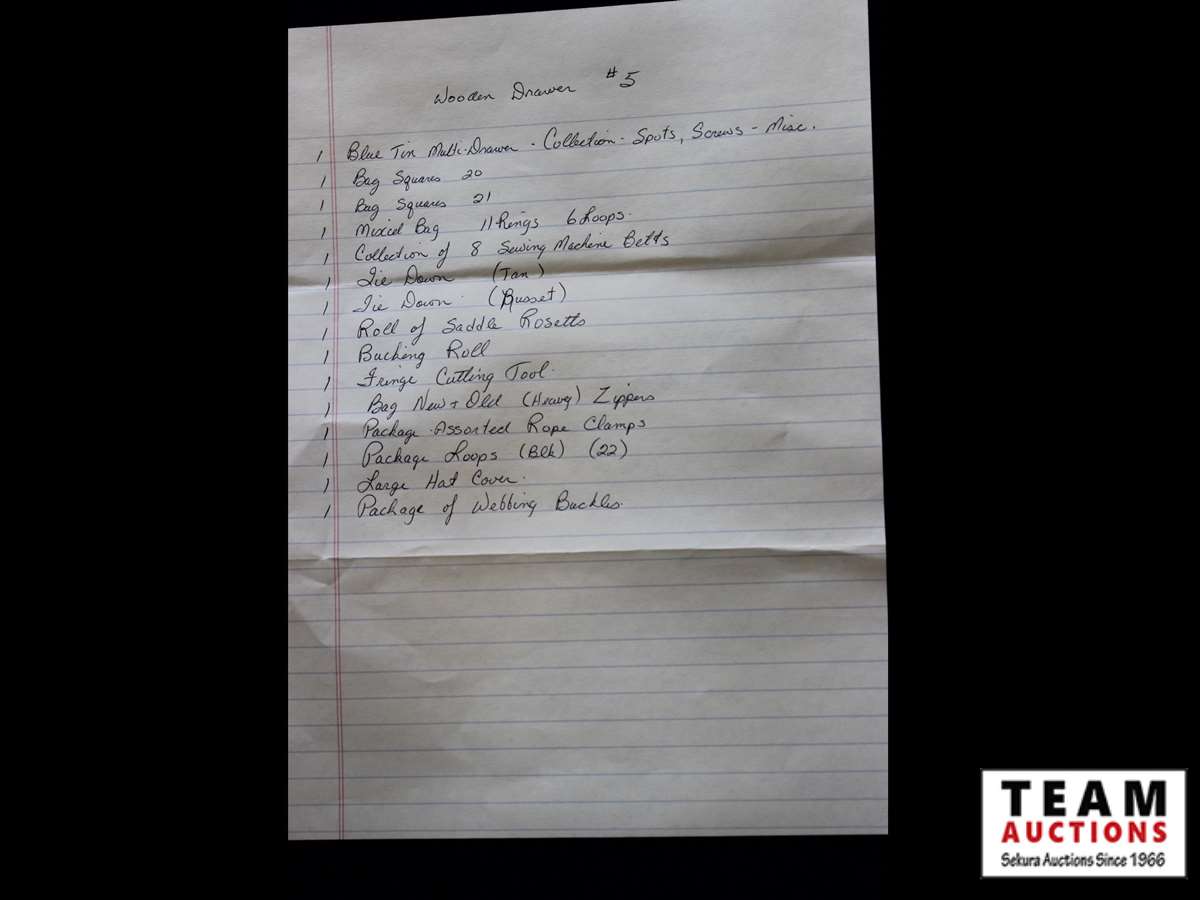 Wooden Drawer #5
1 Blue Tin Multi-Drawer - Collection - Spots, Screws - Misc.
1 Bag Squares 20
1 Bag Squares 21
1 Mixied Bag 11 Rings 6 Loops.
1 Collection of 8 Sewing Machine Belts
1 Tie Down (Tan)
1 Tie Down (Russet)
1 Roll of Saddle Rosetts
1 Bucking Roll
1 Fringe Cutting Tool.
1 Bag New + Old (Heavy) Zippers
1 Package Assorted Rope Clamps
1 Package Loops (Blk) (22)
1 Large Hat Cover.
1 Package of Webbing Buckles.
TEAM
AUCTIONS
Sekura Auctions Since 1966